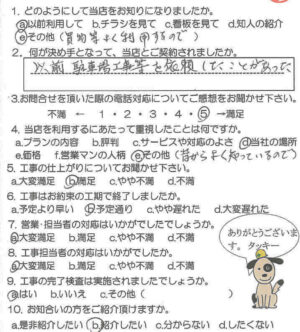 1. どのようにして当店をお知りになりましたか。
ⓐ以前利用して b.チラシを見て c.看板を見て d.知人の紹介
ⓔその他( よく利用するので )
2. 何が決め手となって、当店とご契約されましたか。
以前 駐車場工事等を依頼したことがあった
3.お問合せを頂いた際の電話対応についてご感想をお聞かせ下さい。
不満 ← 1・2・3・4・⑤ →満足
4. 当店を利用するにあたって重視したことは何ですか。
a.プランの内容 b.評判 c.サービスや対応のよさ ⓓ当社の場所
e.価格 f.営業マンの人柄 ⓔその他(昔からよく知っているので)
5. 工事の仕上がりについてお聞かせ下さい。
a.大変満足 ⓑ満足 c.やや不満 d.不満
6. 工事はお約束の工期で終了しましたか。
a.予定より早い ⓑ予定通り c.やや遅れた d.大変遅れた
7. 営業・担当者の対応はいかがでしたでしょうか。
ⓐ大変満足 b.満足 c.やや不満 d.不満
8. 工事担当者の対応はいかがでしたか。
ⓐ大変満足 b.満足 c.やや不満 d.不満
9. 工事の完了検査は実施されましたでしょうか。
ⓐはい b.いいえ c.その他( )
10. お知合いの方をご紹介頂けますか。
a.是非紹介したい ⓑ紹介したい c.分からない d.したくない
ありがとうございま
す。タッキー